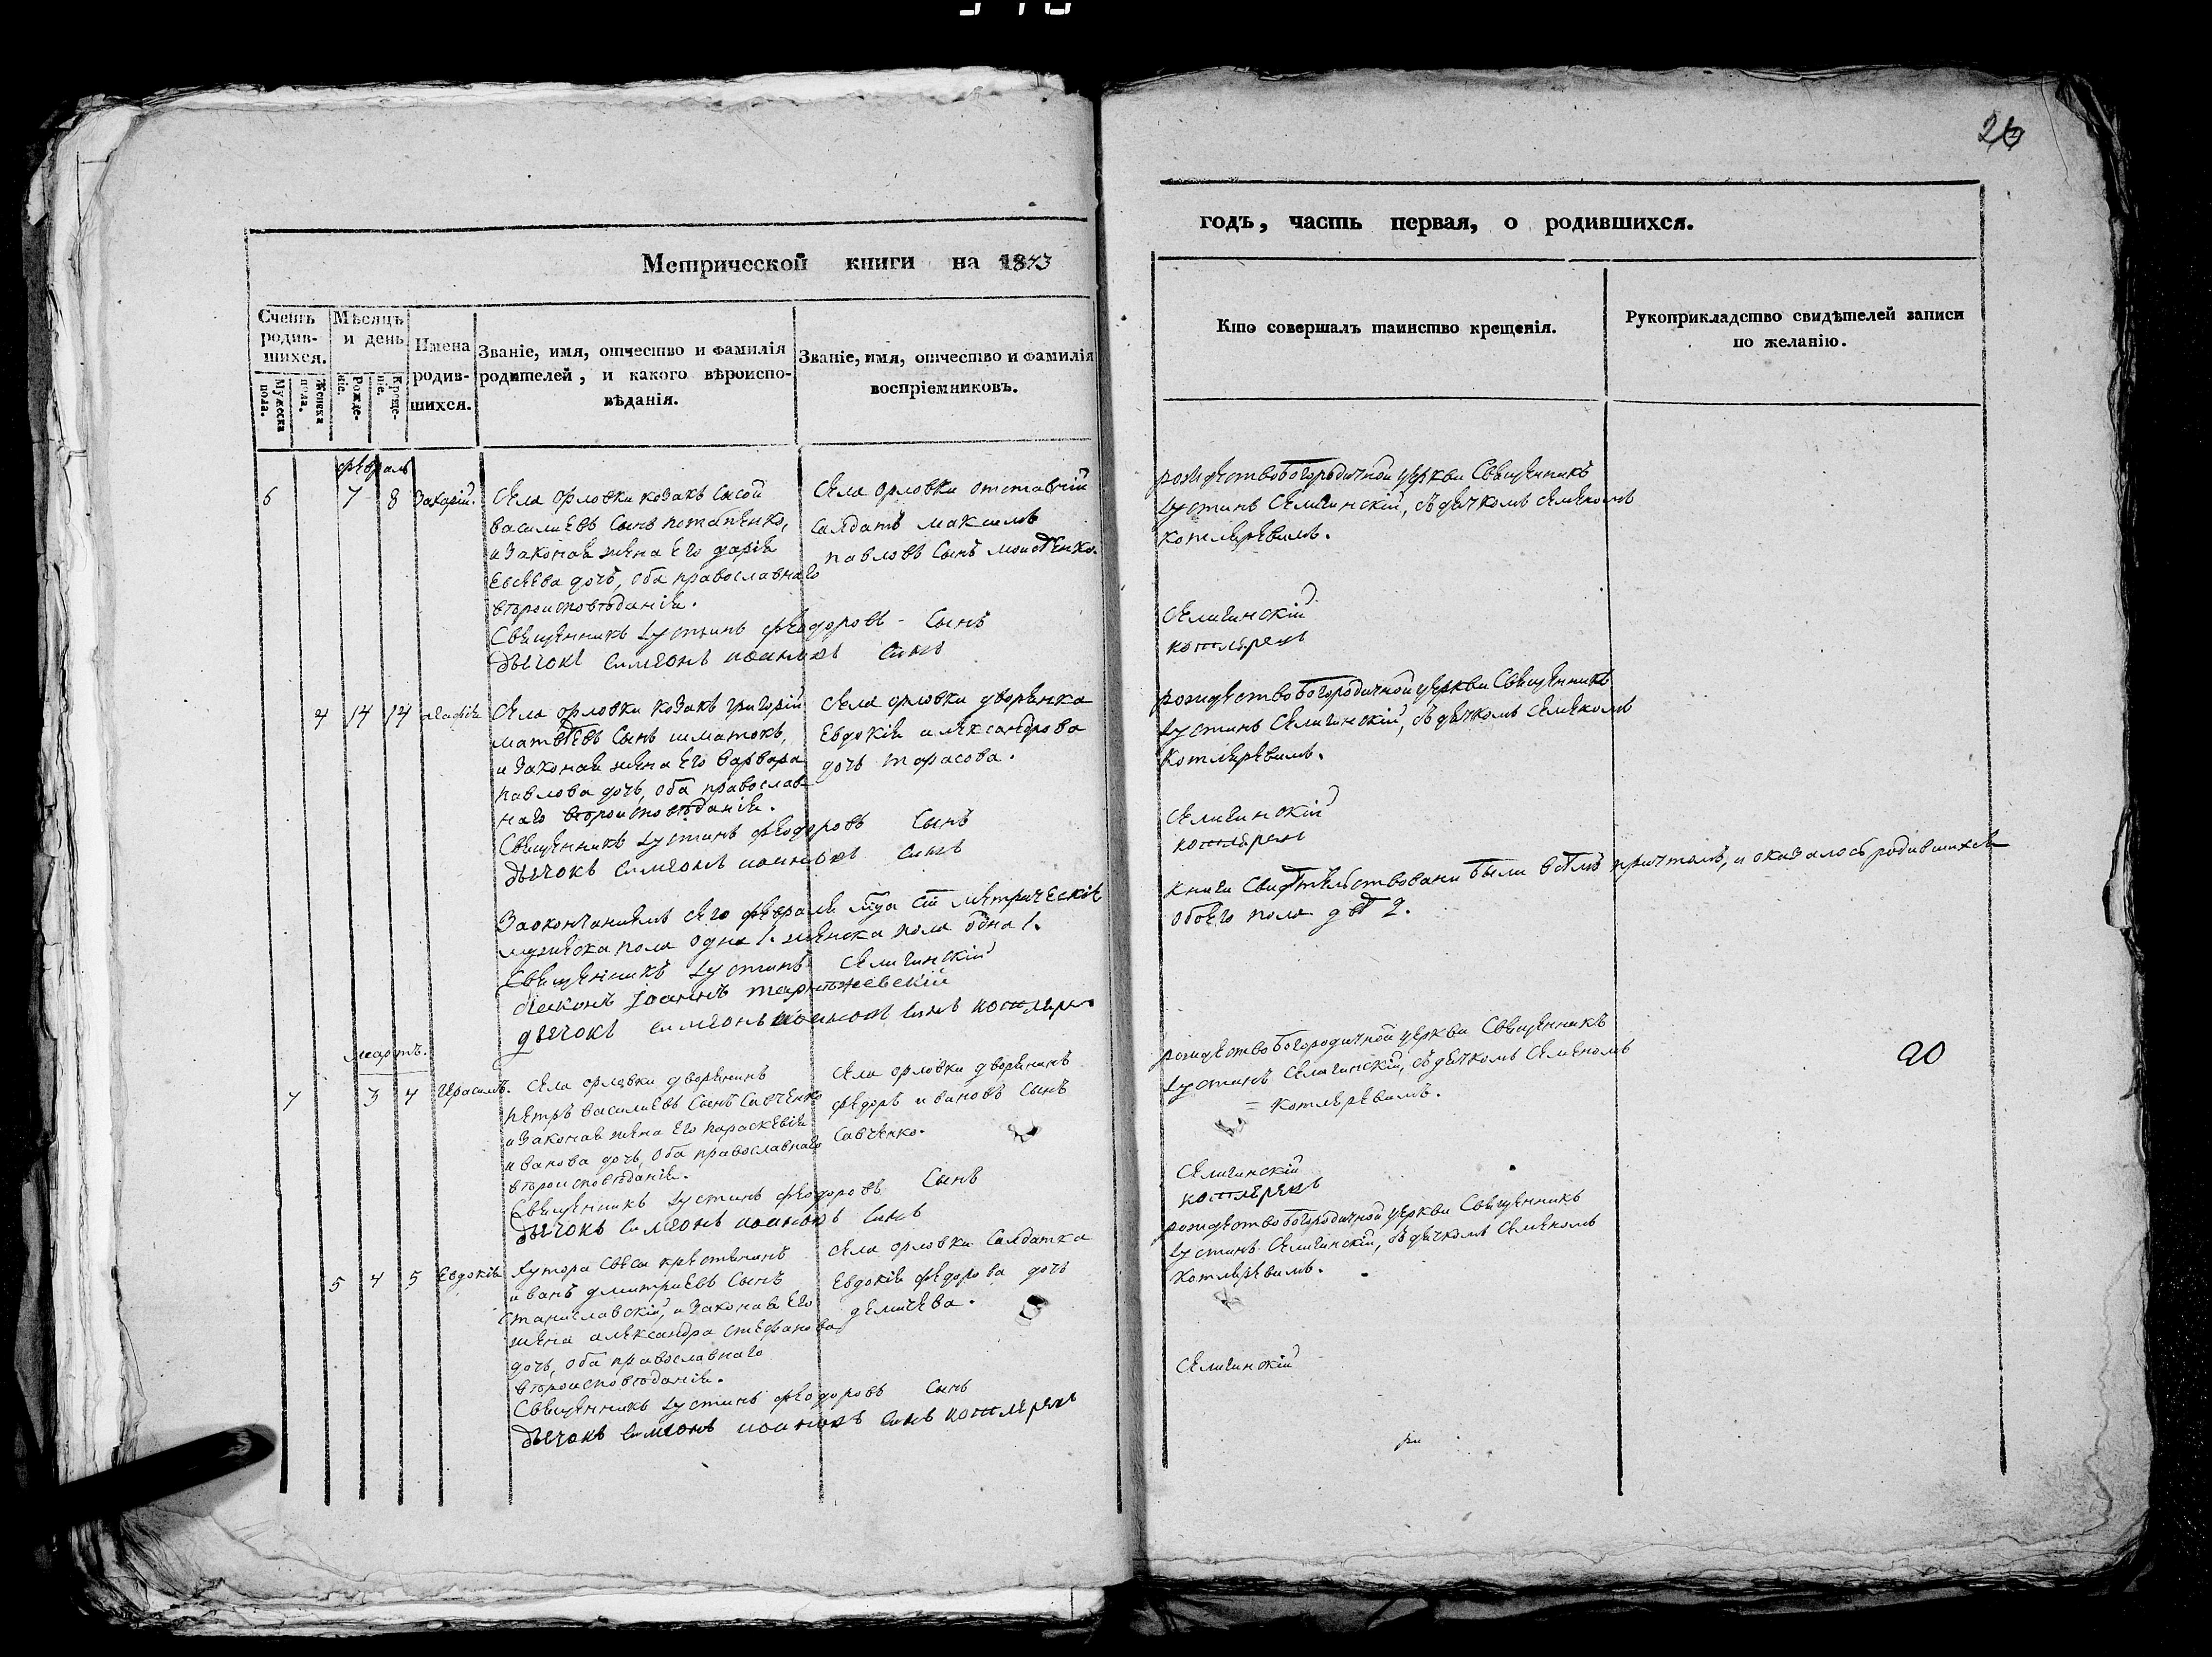 26
Метрической книги на 1843
годъ, часть первая, о родившихся.
Счетъ родив-шихся.
Мужеска пола.
Женска пола.
Мѣсяцъ и день
Рожде-ніе.
Креще-ніе.
Имена родив-шихся.
Званіе, имя, отчество и фамилія
родителей, и какого вѣроиспо-
вѣданія.
Званіе, имя, отчество и фамилія
воспріемниковъ.
Кто совершалъ таинство крещенія.
Рукоприкладство свидѣтелей записи
по желанію.
февраль
6 7 8 Захарій.
Села орловки козакъ Сысой
василіевъ Сынъ потапенко,
и Законая жена Его дарія
Евсеева дочь, Оба православнаго
вѣроисповѣданія.
Священникъ Іустинъ феодоровъ Сынъ
Дьячокъ Симеонъ Сынъ
Села орловки отставній
Салдатъ максимъ
павловъ Сынъ
рождествобогородичной церкви Священникъ
Іустинъ Селигинскій, съ дячкомъ Семеномъ
котляревимъ.
Селигинскій
котляревъ
4 14 14 агафія
Села орловки козакъ григорій
матвѣевъ Сынъ шматокъ,
и Законая жена Его варвара
павлова дочь, Оба православ
наго вѣроисповѣданія.
Священникъ Іустинъ феодоровъ Сынъ
Дьячокъ Симеонъ Сынъ
Села орловки дворянка
Евдокія александрова
дочь тарасова.
рождествобогородичной церкви Священникъ
Іустинъ Селигинскій, съ дячкомъ Семеномъ
Котляревимъ.
Селигинскій
котляревъ
Заокончаніемъ сего февраля мца сіи метрическіе
книги Свидѣтельствовани были всѣмъ причтомъ, и оказалось родившихся
мужеска пола одна 1. женска пола одна 1.
обоего пола двѣ 2.
Священникъ Іустинъ Селигинскій
діаконъ Іоаннъ
дьячокъ Симеонъ Сынъ
мартъ.
7 3 4 Герасимъ.
Села орловки дворянинъ
петръ василіевъ Сынъ Савченко
и Законая жена Его параскевія
иванова дочь, Оба православнаго
вѣроисповѣданія.
Священникъ Іустинъ феодоровъ Сынъ
Дьячокъ Симеонъ Сынъ
Села орловки дворянинъ
федоръ ивановъ Сынъ
Савченко.
рождествобогородичной церкви Священникъ
Іустинъ Селигинскій, съ дячкомъ Семеномъ
= котляревимъ.
20
Селигинскій
котляревъ
5 4 5 Евдокія
Хутора крестянинъ
иванъ дмитріевъ Сынъ
Станиславскій, и Законая Его
жена александра стефанова
дочь, Оба православнаго
вѣроисповѣданія.
Священникъ Іустинъ феодоровъ Сынъ
Дьячокъ Симеонъ Сынъ котляревъ
Села орловки Салдатка
Евдокія федорова дочь
рождествобогородичной церкви Священникъ
Іустинъ Селигинскій, съ дячкомъ Семеномъ
Котляревимъ.
Селигинскій